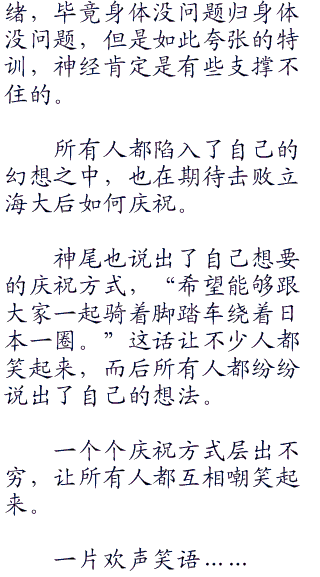 绪，毕竟身体没问题归身体
没问题，但是如此夸张的特
训，神经肯定是有些支撑不
住的。
所有人都陷入了自己的
幻想之中，也在期待击败立
海大后如何庆祝。
神尾也说出了自己想要
的庆祝方式，“希望能够跟
大家一起骑着脚踏车绕着日
本一圈。”这话让不少人都
笑起来，而后所有人都纷纷
说出了自己的想法。
一个个庆祝方式层出不
穷，让所有人都互相嘲笑起
来。
一片欢声笑语……